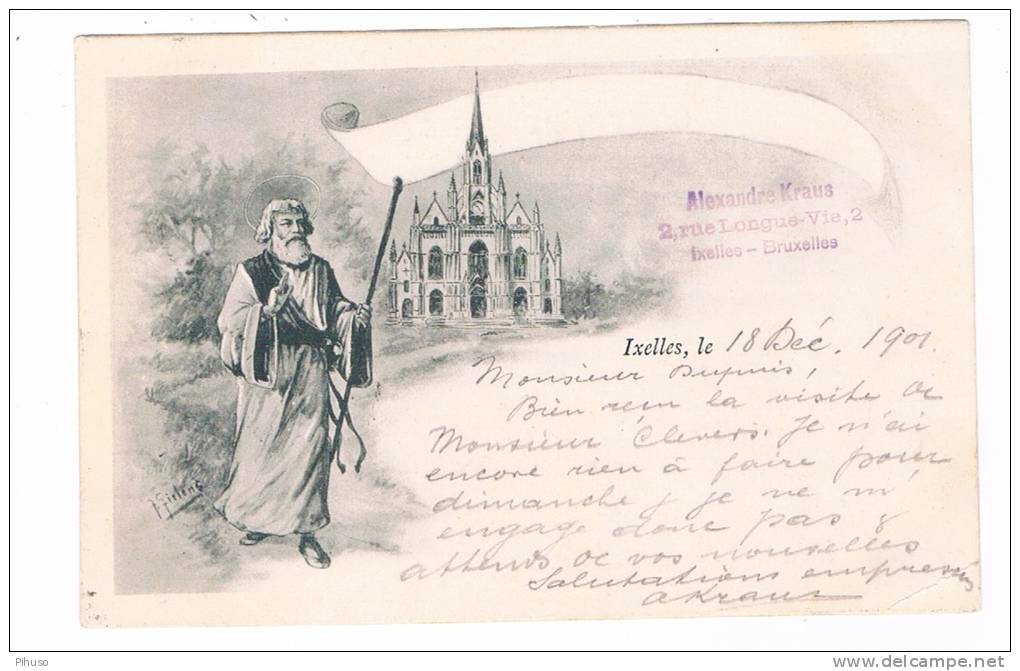 Alexandre Kraus
2, rue Longue-Vie, 2
Ixelles – Bruxelles
Ixelles, le 18 Déc. 1901.
Monsieur Dupuis,
Bien reçu la visite de
Monsieur Clevers. Je n'ai
encore rien à faire pour
dimanche, je ne m'
engage donc pas &
attends de vos nouvelles
Salutations empressées
AKraus
Pihuso
www.delcampe.net